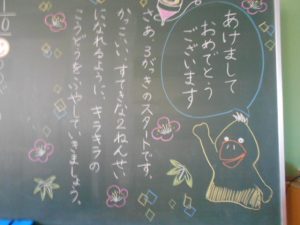 あけまして
おめでとう
ございます
さあ、3がっきのスタートです。
かっこいい、すてきな2ねんせい
になれるように、キラキラの
こうどうをふやしていきましょう。